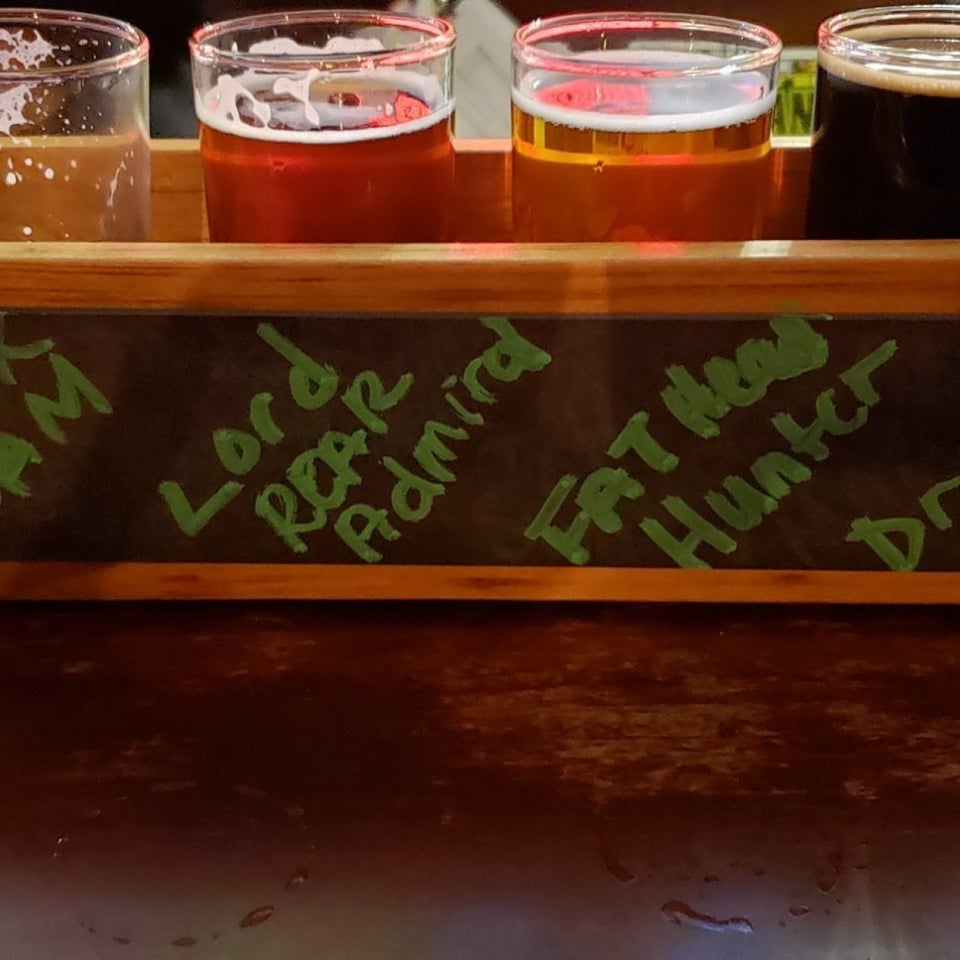 AM
Lord
REAR
Admiral
FAT Head
Hunter
Dr